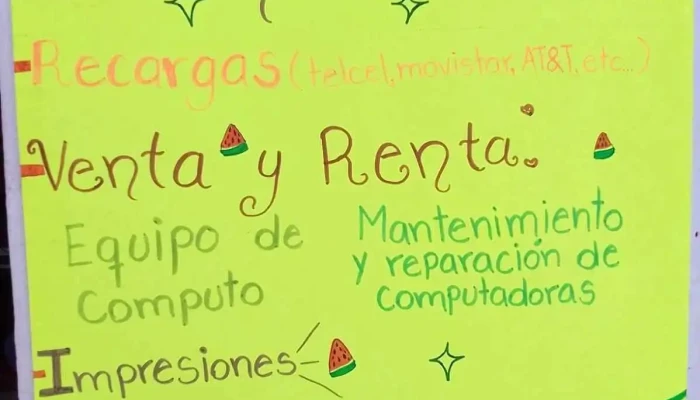 Recargas (telcel, movistar, AT&T, etc...)
Venta y Renta.
Equipo de
Computo
Mantenimiento
y reparación de
computadoras
Impresiones